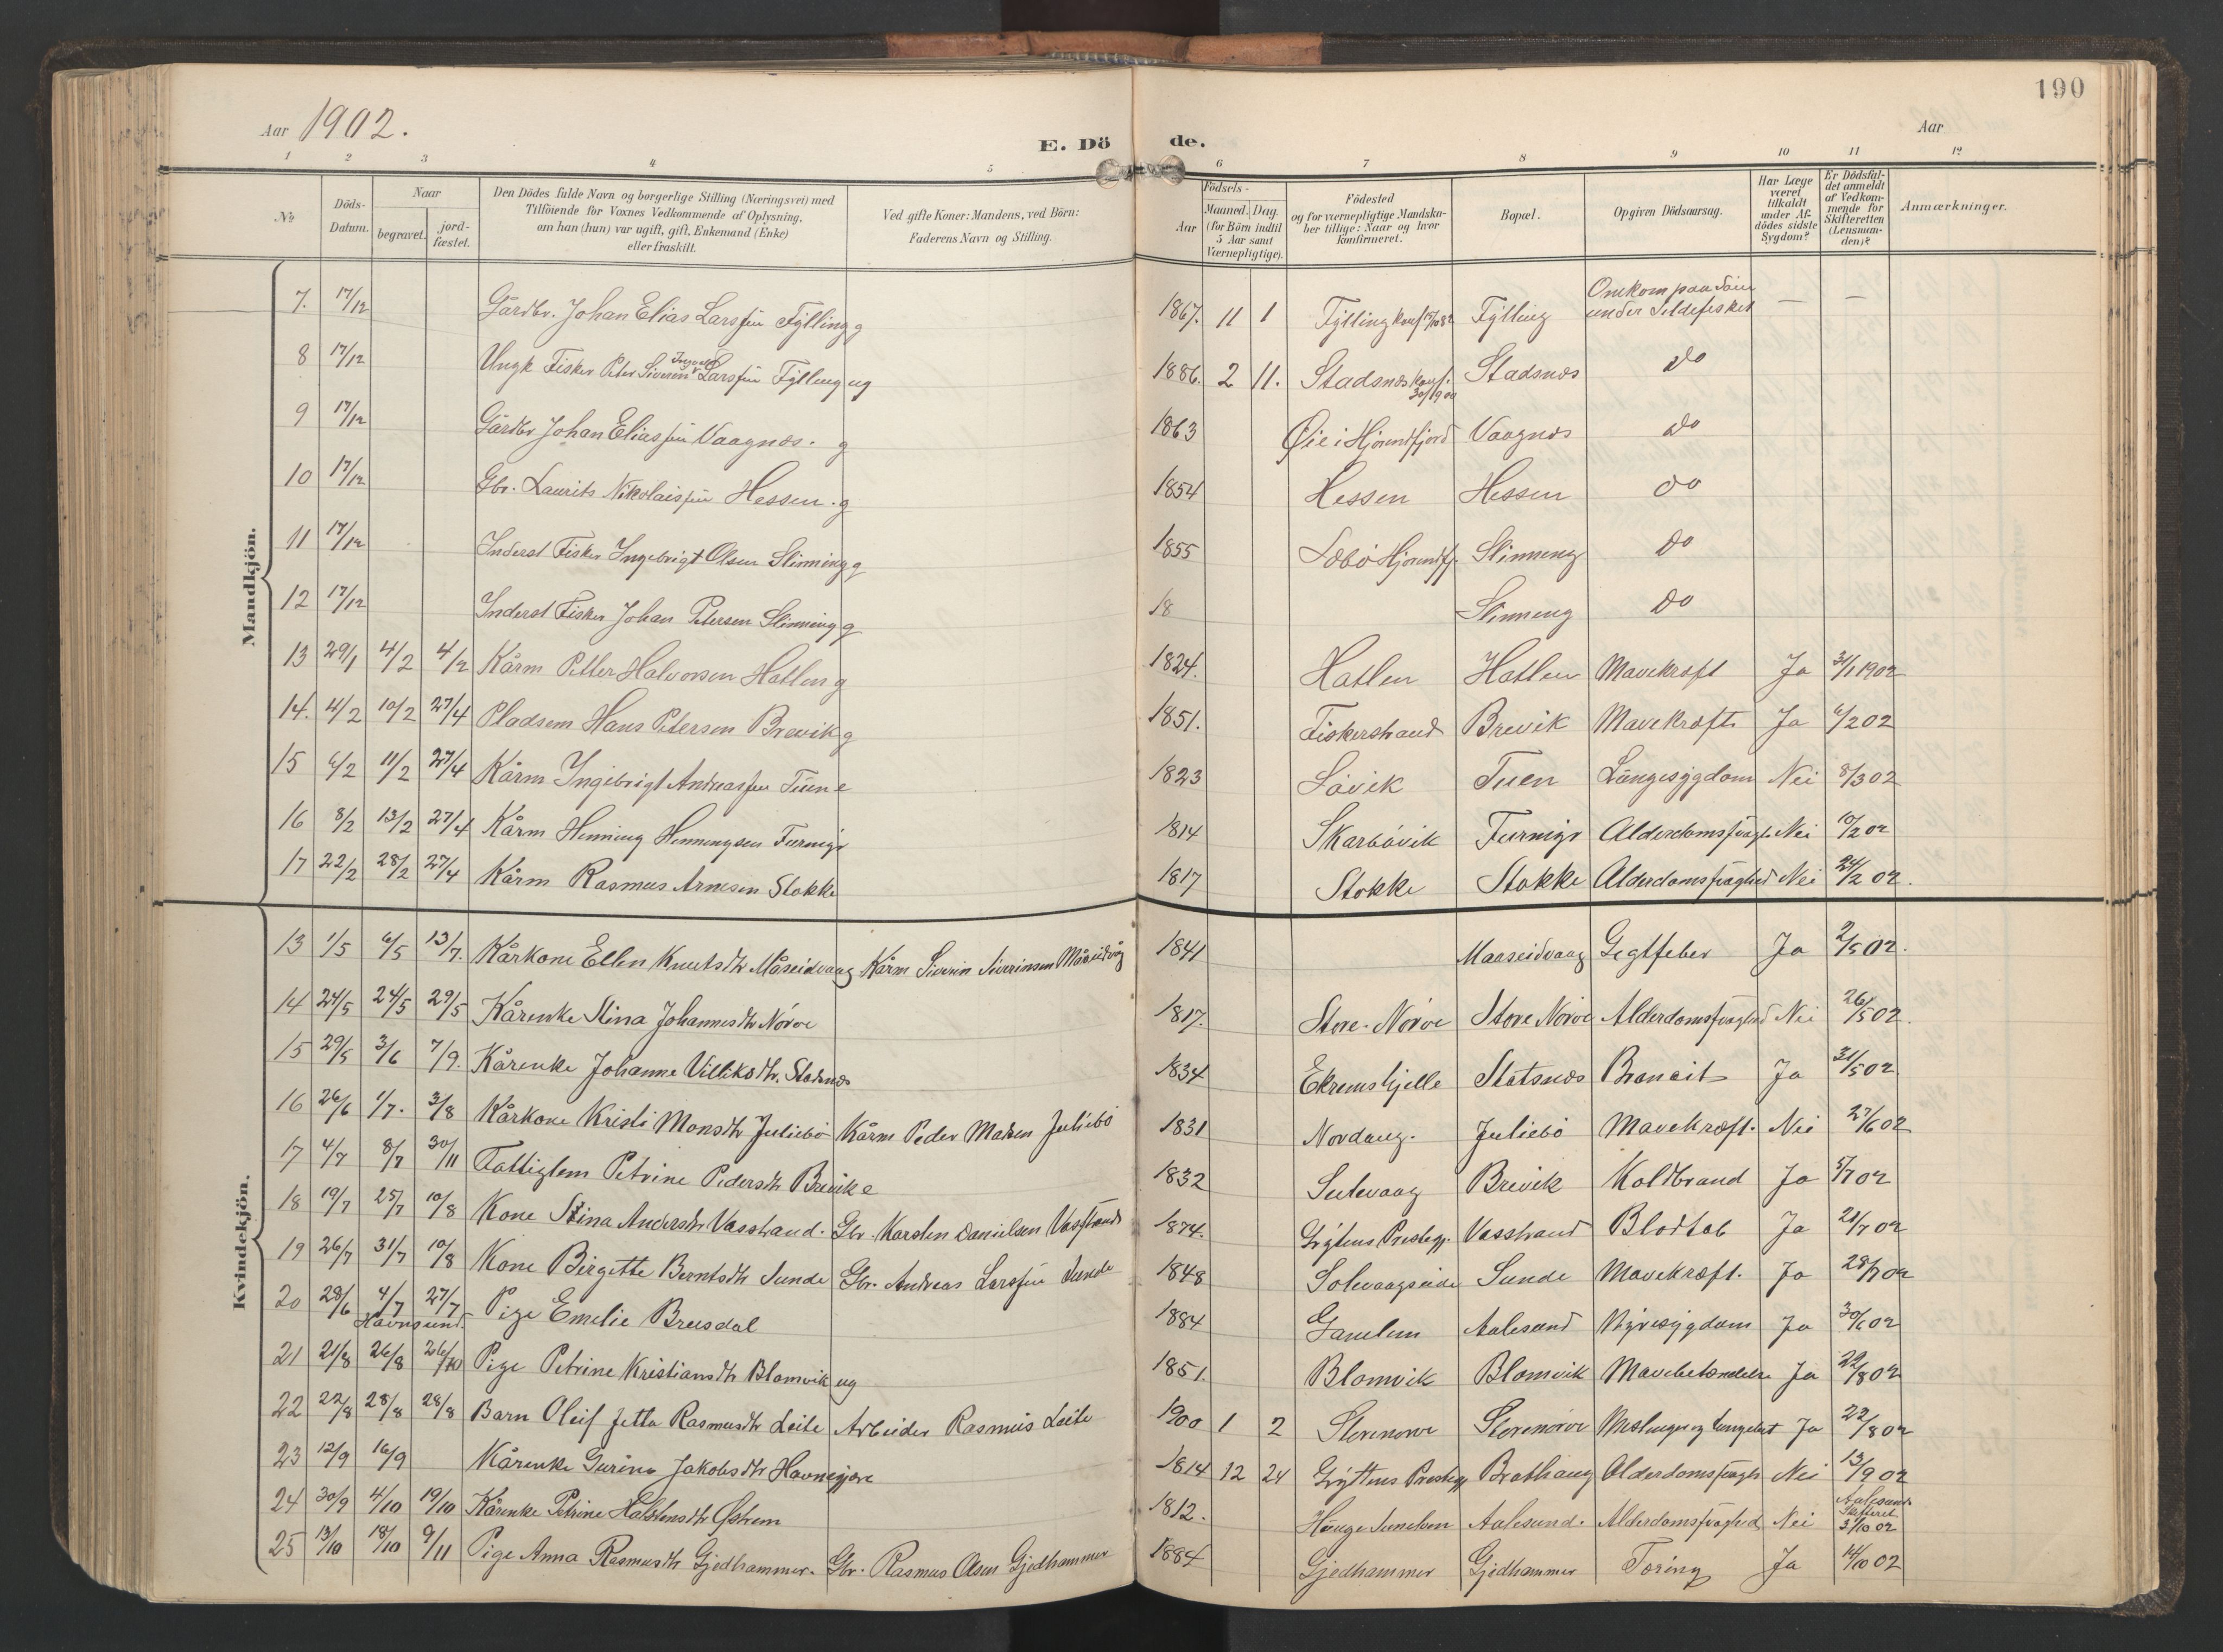 190
Aar 1902.
Aar
E. Dö de.
1 2 3 4 5 6 7 8 9 10 11 12
No
Döds-Datum.
Naar
begravet.
jord-fæstet.
Den Dödes fulde Navn og borgerlige Stilling (Næringsvei) med
Tilföiende for Voxnes Vedkommende af Oplysning,
om han (hun) var ugift, gift, Enkemand (Enke)
eller fraskilt.
Ved gifte Koner: Mandens, ved Börn:
Faderens Navn og Stilling.
Födsels-
Aar
Maaned. Dag.
(for Börn indtil
5 Aar samt
Værnepligtige).
Födested
og for værnepligtige Mandska-
ber tillige: Naar og hvor
konfirmeret.
Bopæl.
Opgiven Dödsaarsag.
Har Læge
været
tilkaldt
under Af-
dödes sidste
Sygdom?
Er Dödsfal-
det anmeldt
af Vedkom-
mende for
Skifteretten
(Lensman-
den)?
Anmærkninger.
Mandkjön.
7. 17/12 Gårdbr. Johan Elias Larssen Fylling g 1867. 11 1 Fylling Fylling Omkom paa Søen under Sildefisket — —
8 17/12 Ungk Fisker Peter Siverin Ingvald Larssen Fylling ug 1886. 2 11. Stadsnæs konf. Stadsnæs do
9 17/12 Gårdbr Johan Eliassen Vaagnæs. g 1863 Øie i Hjørundfjord Vaagnæs do
10 17/12 Gbr. Laurits Nikolaissen Hessen. g 1854 Hessen Hessen do
11 17/12 Inderst Fisker Ingebrigt Olsen Slinning g 1855 Sæbø Hjørundfj. Slinning do
12 17/12 Inderst Fisker Johan Petersen Slinning g 18 Slinning do
13 29/1 4/2 4/2 Kårm Petter Halvorsen Hatlen g 1824. Hatlen Hatlen Mavekræft Ja 31/1 1902
14. 4/2 10/2 27/4 Pladsem Hans Petersen Brevik g 1851. Fiskerstrand Brevik Mavekræft Ja 6/2 02
15 6/2 11/2 27/4 Kårm Ingebrigt Andreassen Tuen e 1823 Løvik Tuen Lungesygdom Nei 8/3 02
16 8/2 13/2 27/4 Kårm Henning Henningsen 1814 Skarbøvik Alderdomssvagh. Nei 10/2 02
17 22/2 28/2 27/4 Kårm Rasmus Arnesen Stokke 1817 Stokke Stokke Alderdomssvaghed Nei 24/2 02.
Kvindekjön.
13 1/5 6/5 13/7. Kårkone Ellen Knutsdtr Måseidvaag Kårm Siverin Siverinsen Måseidvåg 1841 Maaseidvaag Gigtfeber Ja 2/5 02.
14 24/5 24/5 29/5 Kårenke Stina Johannesdtr Nørve 1817. Store-Nørve Store Nørve Alderdomssvaghed Nei 26/5 02.
15 29/5 3/6 7/9. Kårenke Johanne Villiksdtr. Stadsnæs 1834 Ekremshjelle Statsnæs Broncit Ja 31/5 02
16 26/6 1/7. 3/8 Kårkone Kristi Monsdtr Juliebø Kårm Peder Madsen Juliebø 1831 Nordang. Juliebø Mavekræft. Nei 27/6 02
17 4/7 8/7 30/11 Fattiglem Petrine Pedersdtr Brevik e 1832 Sulevaag Brevik Koldbrand Ja 5/7 02
18 19/7 25/7 10/8 Kone Stina Andersdtr Vasstrand. Gbr. Karsten Danielsen Vasstrand 1874. Grytens Prestegj. Vasstrand Blodtab Ja 21/7 02
19 26/7 31/7 10/8 Kone Birgitte Berntsdtr Sunde Gbr. Andreas Larssen Sunde 1848 Solevaagseide Sunde Mavekræft. Ja 28/7 02
20 28/6 4/7 27/7 Pige Emelie Breisdal 1884 Aalesund Nyresygdom Ja 30/6 02
Havnsund.
21 21/8 26/8 26/10 Pige Petrine Kristiansdtr Blomvik ug 1851. Blomvik Blomvik Mavebetændelse Ja 22/8 02
22 22/8 28/8 28/8 Barn Oleif Jetta Rasmusdtr Leite Arbeider Rasmus Leite 1900 1 2 Storenørve Storenørve Meslinger og Lungebet Ja 22/8 02
23 12/9 16/9 Kårenke Gurine Jakobsdtr Havnegjære 1814 12 24 Gryttens Prestegj Brathaug Alderdomssvagh Nei 13/9 02
24 30/9 4/10 19/10 Kårenke Petrine Halstensdtr Østrem 1812. Hauge Aalesund. Alderdomssvaghed Nei Aalesunds Skifteret 3/10 02
25 13/10 18/10 9/11 Pige Anna Rasmusdtr Gjedhammer. Gbr. Rasmus Olsen Gjedhammer 1884 Gjedhammer Gjedhammer Tæring Ja 14/10 02